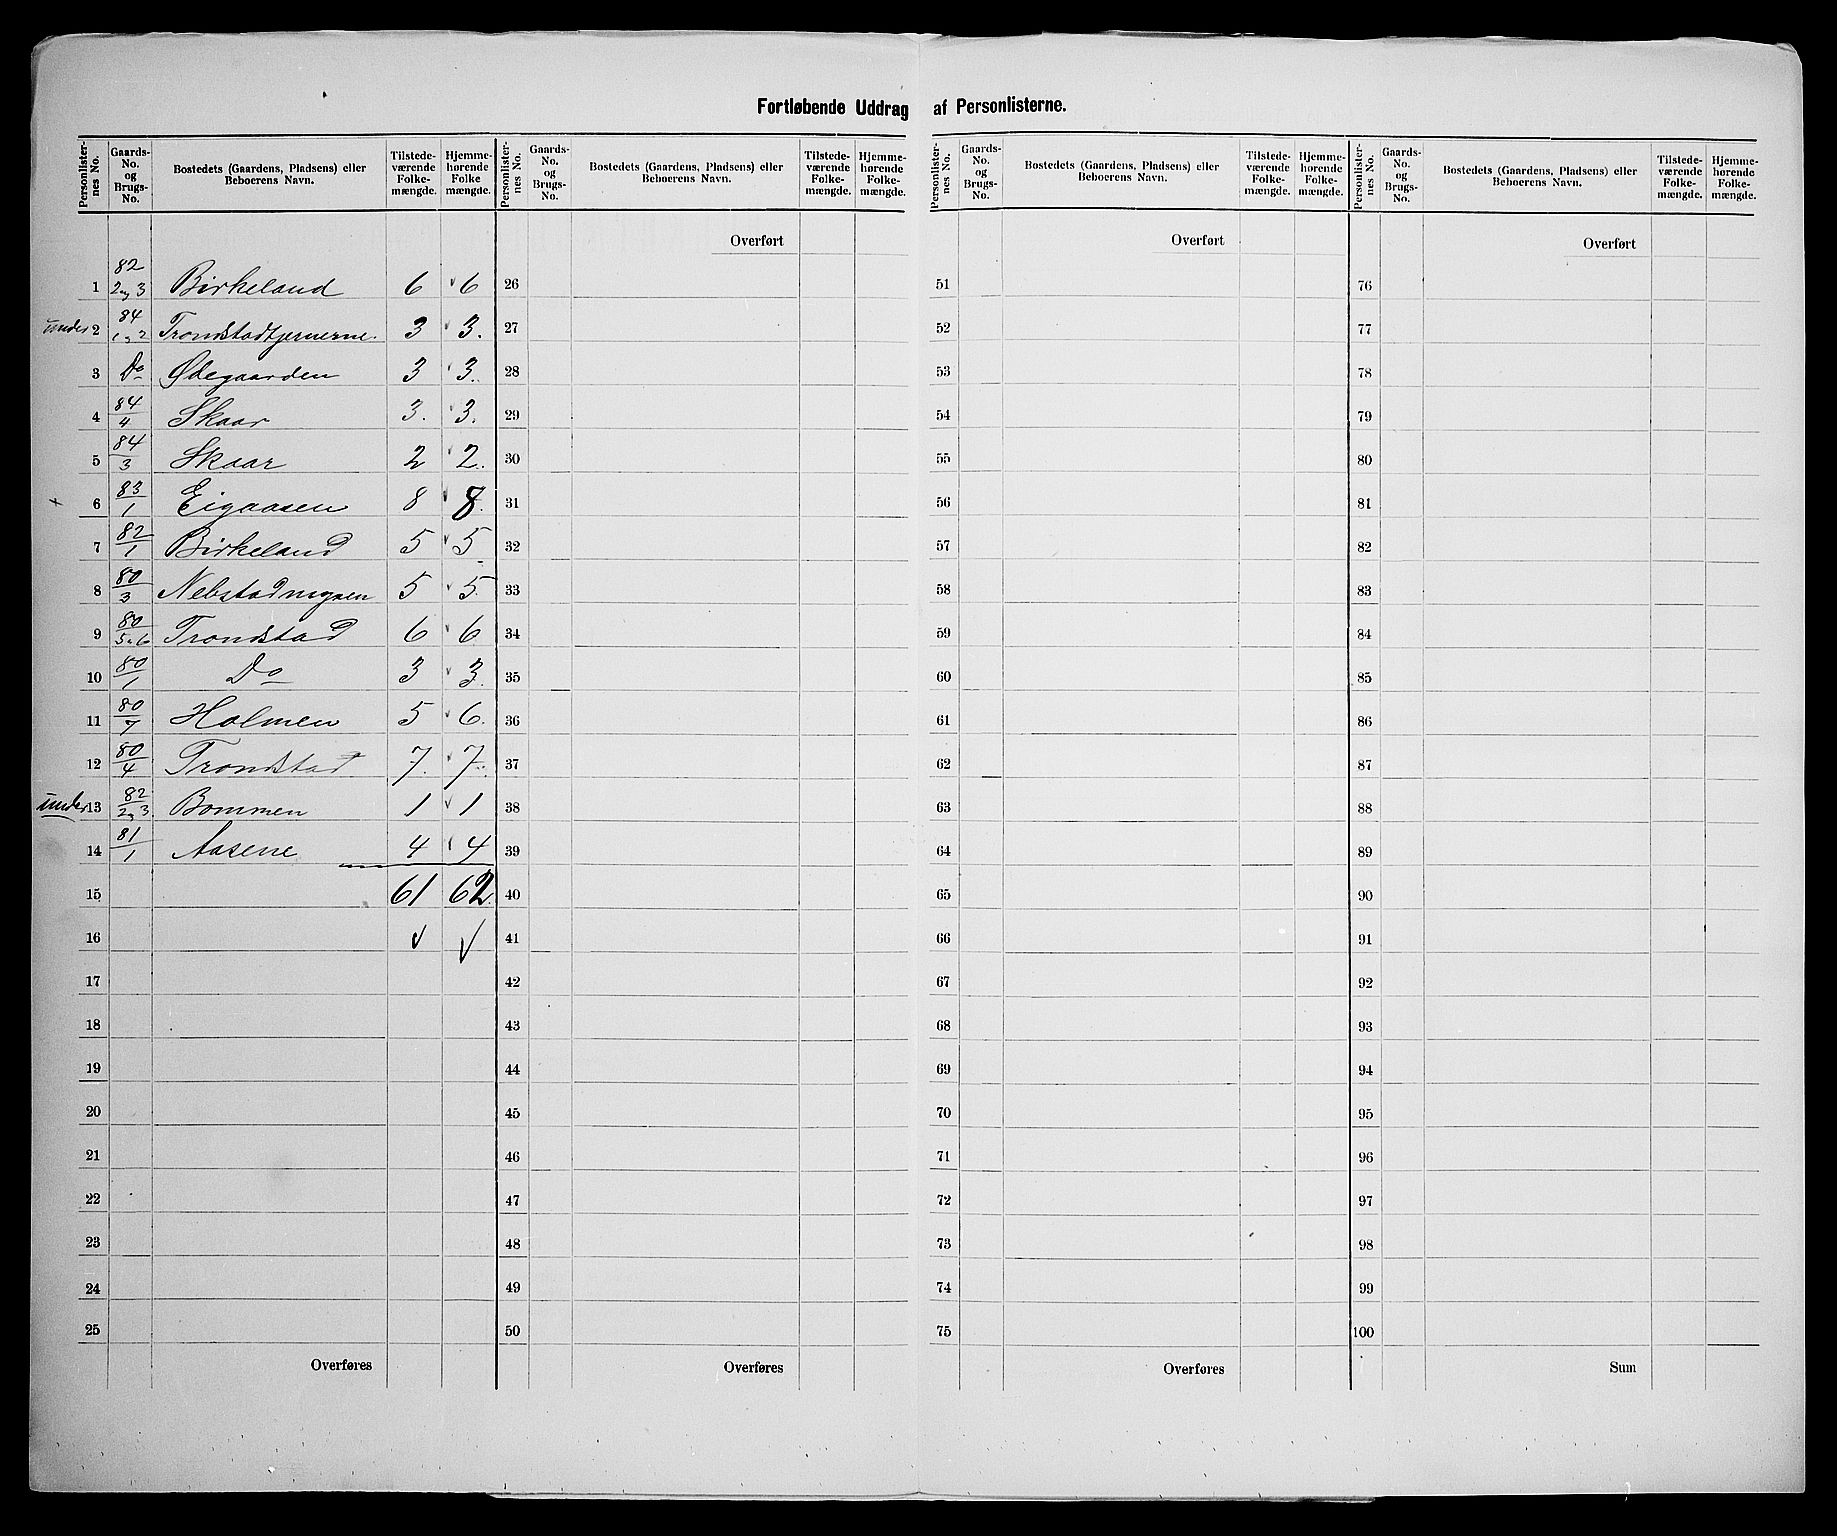 Fortløbende Uddrag af Personlisternes.
Personlister-nes No. | Gaards-No. og Brugs-No. | Bostedets (Gaardens, Pladsens) eller Beboerens Navn. | Tilstede-værende Folke-mængde. | Hjemme-hørende Folke mængde.
Personlister-nes No. | Gaards-No. og Brugs-No. | Bostedets (Gaardens, Pladsens) eller Beboerens Navn. | Tilstede-værende Folke-mængde. | Hjemme-hørende Folke-mængde.
Personlister-nes No. | Gaards-No. og Brugs-No. | Bostedets (Gaardens, Pladsens) eller Beboerens Navn. | Tilstede-værende Folke-mængde. | Hjemme-hørende Folke-mængde.
Personlister-nes No. | Gaards-No. og Brugs-No. | Bostedets (Gaardens, Pladsens) eller Beboerens Navn. | Tilstede-værende Folke-mængde. | Hjemme-hørende Folke-mængde.
Overført Overført Overført
1 82/2og3 Birkeland 6 6 26 51 76
under 2 84/1og2 Trondstadtjernerne. 3 3. 27 52 77
3 Do Ødegaarden 3 3. 28 53 78
4 84/4 Skaar 3. 3. 29 54 79
5 84/3 Skaar 2 2. 30 55 80
+ 6 83/1 Eigaasen 8 8. 31 56 81
7 82/1 Birkeland 5 5 32 57 82
8 80/3 Nebstadmyren 5 5. 33 58 83
9 80/5-6 Trondstad 6 6. 34 59 84
10 80/1 Do 3 3. 35 60 85
11 80/7 Holmen 5 6. 36 61 86
12 80/4 Trondstad 7. 7. 37 62 87
under 13 82/2og3 Bommen 1 1 38 63 88
14 81/1 Aasene 4 4 39 64 89
15 61 62. 40 65 90
16 41 66 91
17 42 67 92
18 43 68 93
19 44 69 94
20 45 70 95
21 46 71 96
22 47 72 97
23 48 73 98
24 49 74 99
25 50 75 100
Overføres Overføres Overføres Sum